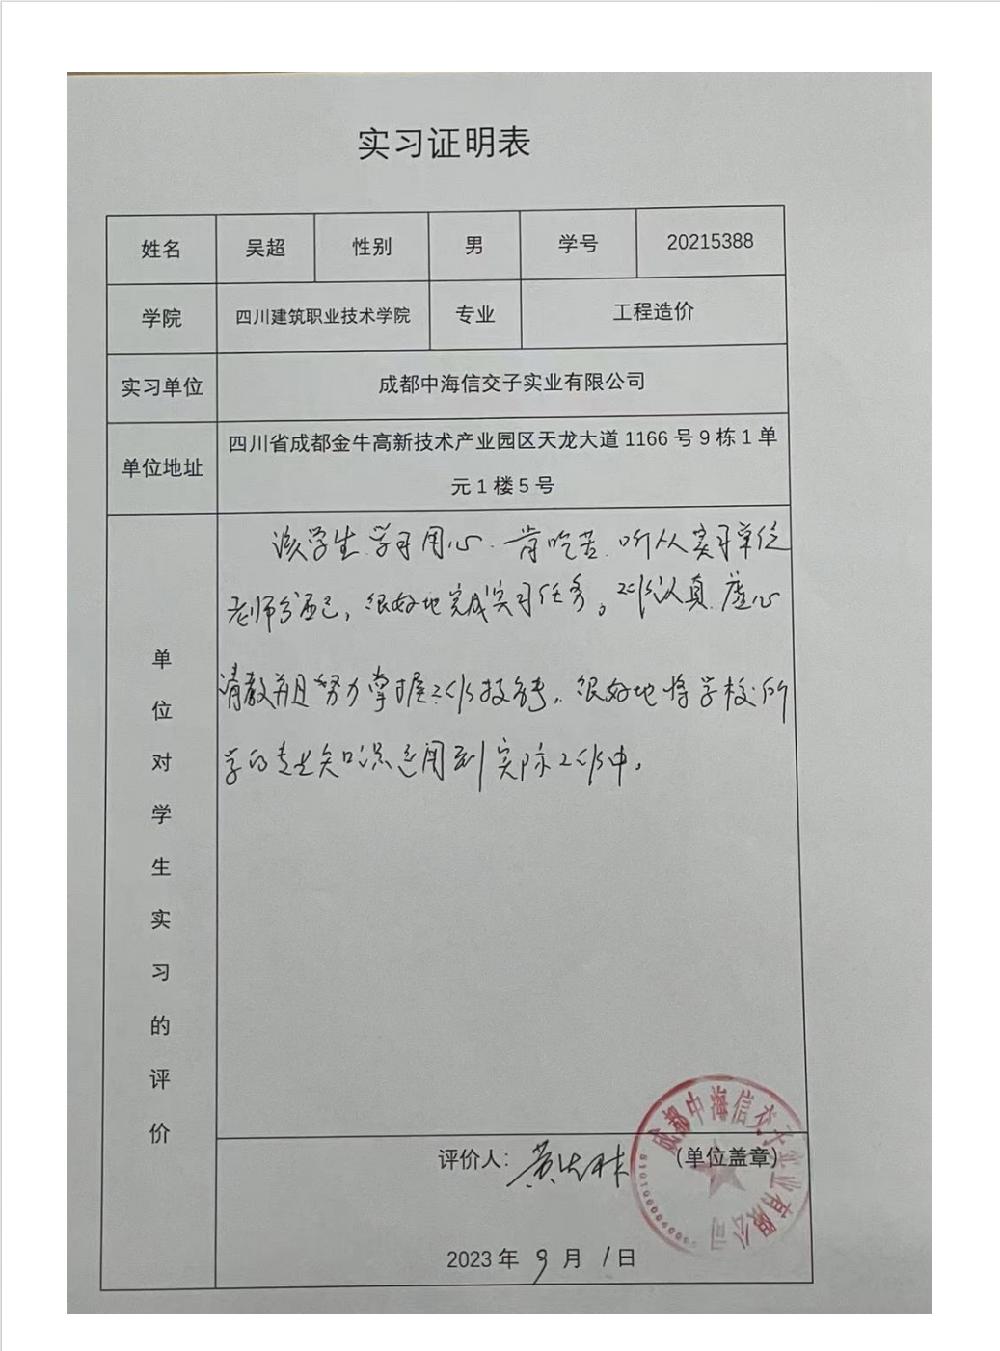 实习证明表
姓名 吴超 性别 男 学号 20215388
学院 四川建筑职业技术学院 专业 工程造价
实习单位 成都中海信交子实业有限公司
单位地址 四川省成都金牛高新技术产业园区天龙大道1166号9栋1单
元1楼5号
单位对学生实习的评价
该学生学习用心.肯吃苦.听从实习单位
老师分配,很好地完成实习任务。工作认真.虚心
请教并且努力掌握工作技能,很好地将学校所
学的专业知识运用到实际工作中。
评价人: (单位盖章)
成都中海信交子实业有限公司
2023年9月1日